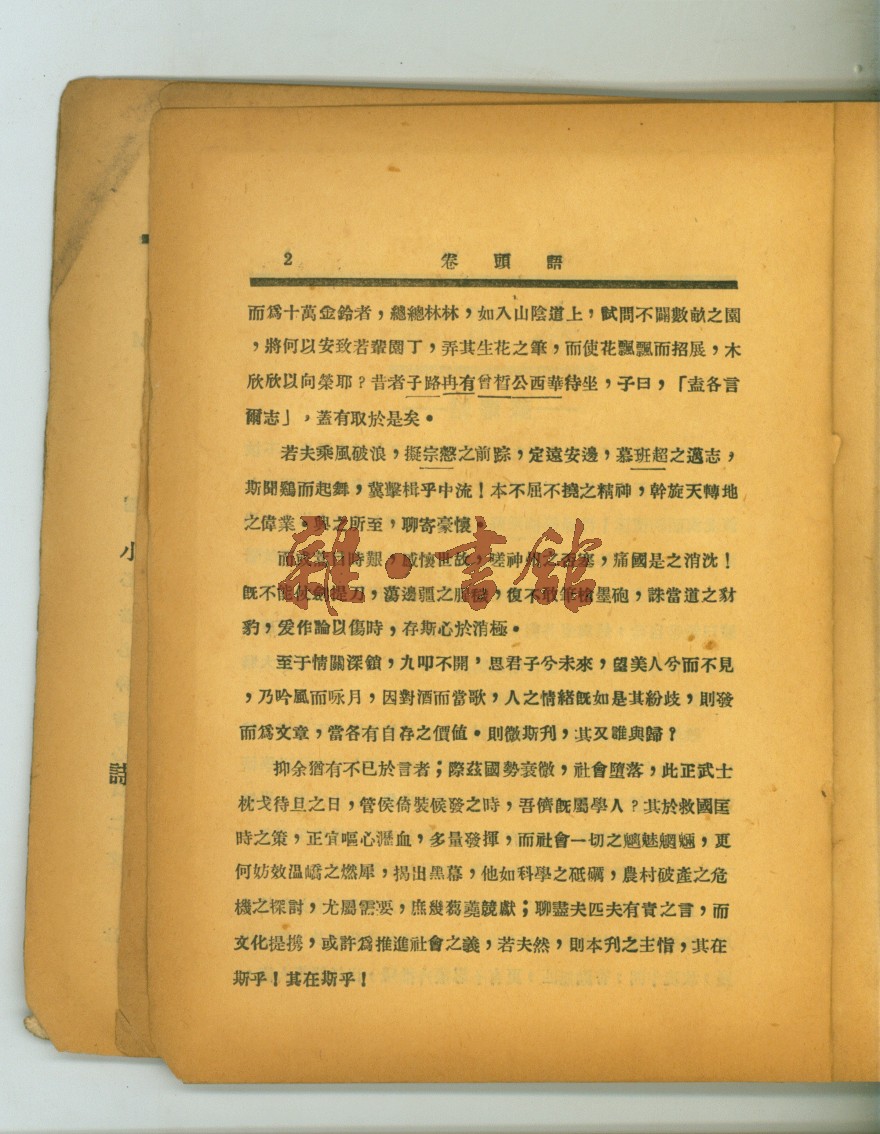 2 卷頭語
而爲十萬金鈴者，總總林林，如入山陰道上，試問不闢數畝之園
，將何以安致若輩園丁，弄其生花之筆，而使花飄飄而招展，木
欣欣以向榮耶？昔者子路冉有曾晳公西華待坐，子曰，「盍各言
爾志」，蓋有取於是矣。
若夫乘風破浪，擬宗愨之前踪，定遠安邊，慕班超之邁志，
斯聞鷄而起舞，冀擊楫乎中流！本不屈不撓之精神，幹旋天轉地
之偉業。興之所至，聊寄豪懷。
而或蒿目時艱，感懷世故，嗟神州之否塞，痛國是之消沈！
旣不能仗劍提刀，蕩邊疆之腥穢，復不敢筆槍墨砲，誅當道之豺
豹，爰作論以傷時，存斯心於消極。
至于情關深鎖，九叩不開，思君子兮未來，望美人兮而不見
，乃吟風而咏月，因對酒而當歌，人之情緒旣如是其紛歧，則發
而爲文章，當各有自存之價値。則微斯刋，其又誰與歸？
抑余猶有不已於言者；際茲國勢衰微，社會墮落，此正武士
枕戈待旦之日，管侯倚裝候發之時，吾儕旣屬學人？其於救國匡
時之策，正宜嘔心瀝血，多量發揮，而社會一切之魑魅魍魎，更
何妨效溫嶠之燃犀，揭出黑幕，他如科學之砥礪，農村破產之危
機之探討，尤屬需要，庶幾蒭蕘競獻；聊盡夫匹夫有責之言，而
文化提携，或許爲推進社會之義，若夫然，則本刋之主恉，其在
斯乎！其在斯乎！
小
詩
雜·書館